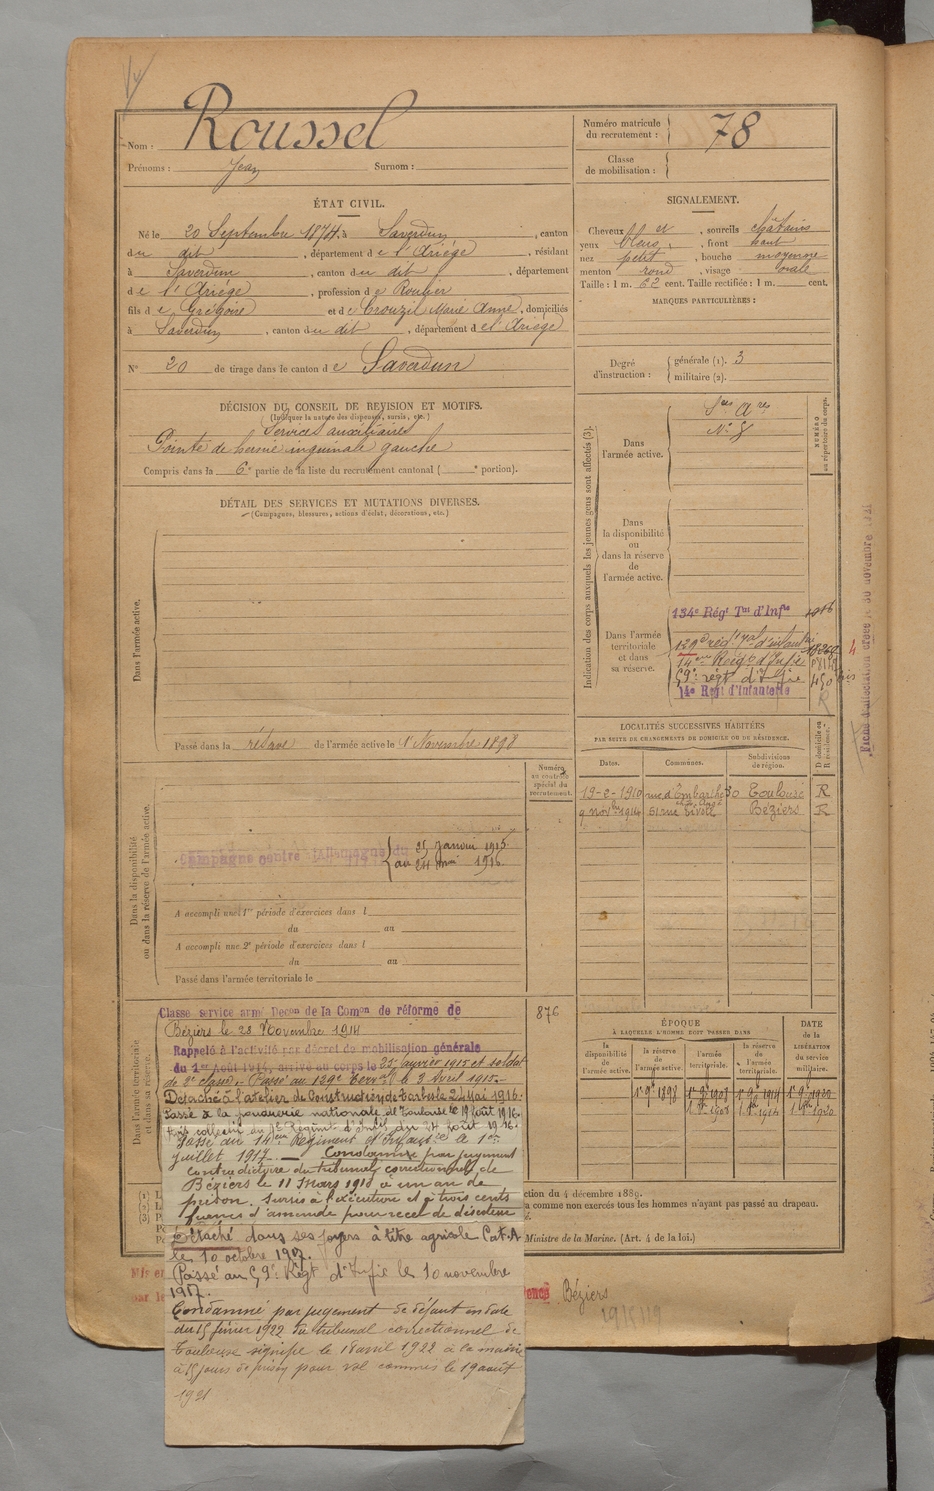 Nom : Roussel
Prénoms : Jean Surnom :
Numéro matricule du recrutement : 78
Classe de mobilisation :
ÉTAT CIVIL.
Né le 20 Septembre 1874, à Saverdun, canton
du dit, département de l'Ariège, résidant
à Saverdun, canton du dit, département
de l'Ariège, profession de Roulier
fils de Grégoire et de Crouzil Marie Anne, domiciliés
à Saverdun, canton du dit, département de l'Ariège
N° 20 de tirage dans le canton de Saverdun
SIGNALEMENT.
Cheveux et, sourcils châtains
yeux bleus, front haut
nez petit, bouche moyenne
menton rond, visage ovale
Taille : 1 m. 62 cent. Taille rectifiée : 1 m. cent.
MARQUES PARTICULIÈRES :
Degré d'instruction : générale (1). 3
militaire (2).
DÉCISION DU CONSEIL DE REVISION ET MOTIFS.
(Indiquer la nature des dispenses, sursis, etc.)
Services auxiliaires
Pointe de hernie inguinale gauche
Compris dans la 6e partie de la liste du recrutement cantonal ( e portion).
DÉTAIL DES SERVICES ET MUTATIONS DIVERSES.
(Campagnes, blessures, actions d'éclat, décorations, etc.)
Dans l'armée active.
Passé dans la réserve de l'armée active le 1er Novembre 1898
Indication des corps auxquels les jeunes gens sont affectés (3).
NUMÉRO au répertoire du corps.
Dans l'armée active.
Ses Ares
Dans la disponibilité ou dans la réserve de l'armée active.
Dans l'armée territoriale et dans sa réserve.
134e Régt Tal d'Infie
129e régt Tal d'infanterie
14eme Reigt d'Infie
59e régt d'Infie 450 bis
14e Regt d'Infanterie R
LOCALITÉS SUCCESSIVES HABITÉES
PAR SUITE DE CHANGEMENTS DE DOMICILE OU DE RÉSIDENCE.
Dates. Communes. Subdivisions de région. D domicile ou R résidence.
19-2-1910 Toulouse R
9 novbre 1914 61 rue Béziers R
Dans la disponibilité ou dans la réserve de l'armée active.
Numéro au contrôle spécial du recrutement.
Campagne contre l'Allemagne du 25 janvier 1915
au 24 mai 1916
A accompli une 1re période d'exercices dans l
du au
A accompli une 2e période d'exercices dans l
du au
Passé dans l'armée territoriale le
Dans l'armée territoriale et dans sa réserve.
876
Classe service armé Decon de la Comon de réforme de
Béziers le 28 Novembre 1914
Rappelé à l'activité par décret de mobilisation générale
du 1er Août 1914, arrivé au corps le 25 janvier 1915 et soldat
de 2e classe. Passé au 129e Terral le 3 Avril 1915.
Détaché à l'atelier de Construction de Tarbes le 24 Mai 1916.
Passé à la poudrerie nationale de Toulouse le 19 Août 1916.
Passé au 14eme Régiment d'Infanterie le 1er
Juillet 1917. — Condamné par jugement
contradictoire du tribunal correctionnel de
Béziers le 11 Mars 1918 à un an de
prison. Sursis à l'exécution et à trois cents
francs d'amende pour recel de déserteur
Détaché dans ses foyers à titre agricole Cat. A
le 10 octobre 1917.
Passé au 59e Régt d'Infie le 10 novembre
1917.
Condamné par jugement de défaut en date
du 15 février 1922 du tribunal correctionnel de
Toulouse signifié le 18 avril 1922 à la mairie
à 15 jours de prison pour vol commis le 19 août
1921
ÉPOQUE
À LAQUELLE L'HOMME DOIT PASSER DANS
la disponibilité de l'armée active. la réserve de l'armée active. l'armée territoriale. la réserve de l'armée territoriale.
DATE de la LIBÉRATION du service militaire.
1er 9bre 1898
ction du 4 décembre 1889.
a comme non exercés tous les hommes n'ayant pas passé au drapeau.
Ministre de la Marine. (Art. 4 de la loi.)
Béziers